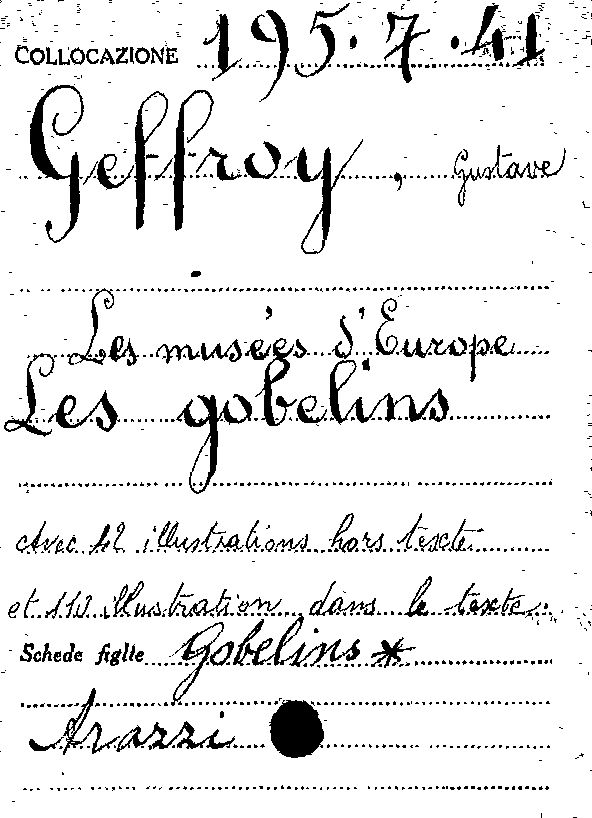 COLLOCAZIONE 195.7.41
Geffroy, Gustave
Les musées d'Europe
Les gobelins
Avec 42 illustrations hors texte
et 113 illustration dans le texte.
Schede figlie Gobelins *
Arazzi